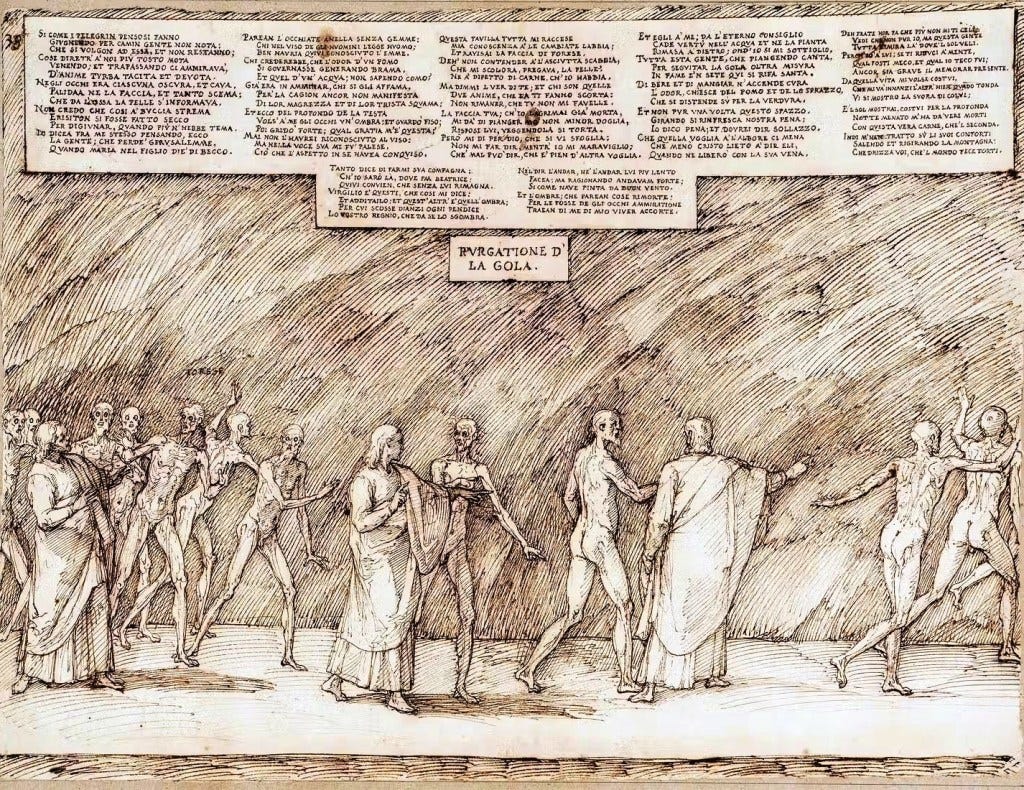 38
SI COME I PELEGRIN PENSOSI FANNO
GIVGNENDO PER CAMIN GENTE NON NOTA;
CHE SI VOLGON AD ESSA, ET NON RESTANNO;
COSI DIRETR' A' NOI PIV TOSTO MOTA
VENENDO, ET TRAPASSANDO CI AMMIRAVA,
D'ANIME TVRBA TACITA ET DEVOTA.
NEGLI OCCHI ERA CIASCVNA OSCVRA, ET CAVA,
PALLIDA NE LA FACCIA, ET TANTO SCEMA;
CHE DA L'OSSA LA PELLE S'INFORMAVA.
NON CREDO CHE COSI A' BVCCIA STREMA
ERISITON SI FOSSE FATTO SECCO
PER DIGIVNAR, QVANDO PIV N'HEBBE TEMA.
IO DICEA FRA ME STESSO PENSANDO, ECCO
LA GENTE; CHE PERDE' GERVSALEMME,
QVANDO MARIA NEL FIGLIO DIE' DI BECCO.
PAREAN L'OCCHIATE ANELLA SENZA GEMME;
CHI NEL VISO DE GLI HVOMINI LEGGE HVOMO;
BEN HAVRIA QVIVI CONOSCIVTO L'EMME.
CHI CREDEREBBE, CHE L'ODOR D'VN POMO
SI GOVERNASSE GENERANDO BRAMA,
ET QVEL D'VN' ACQVA; NON SAPENDO COMO?
GIA ERA IN AMMIRAR, CHI SI GLI AFFAMA,
PER LA CAGION ANCOR NON MANIFESTA
DI LOR MAGREZZA ET DI LOR TRISTA SQVAMA;
ET ECCO DEL PROFONDO DE LA TESTA
VOLS' A' ME GLI OCCHI VN' OMBRA, ET GVARDO FISO;
POI GRIDO FORTE; QVAL GRATIA M'E' QVESTA?
MAI NON L'HAVREI RICONOSCIVTO AL VISO;
MA NELLA VOCE SVA MI FV' PALESE,
CIO CHE L'ASPETTO IN SE HAVEA CONQVISO.
QVESTA FAVILLA TVTTA MI RACCESE
MIA CONOSCENZA A' LE CAMBIATE LABBIA;
ET RAVISAI LA FACCIA DI FORESE.
DEH' NON CONTENDER A' L'ASCIVTTA SCABBIA;
CHE MI SCOLORA, PREGAVA, LA PELLE;
NE A' DIFETTO DI CARNE, CH'IO HABBIA.
MA DIMMI L VER DI TE; ET CHI SON QVELLE
DVE ANIME, CHE LA TI FANNO SCORTA:
NON RIMANER, CHE TV NON MI FAVELLE.
LA FACCIA TVA, CH'IO LAGRIMAI GIA MORTA,
MI DA' DI PIANGER MO NON MINOR DOGLIA,
RISPOSE LVI, VEGGENDOLA SI TORTA.
PERO MI DI PER DIO, CHE SI VI SFOGLIA;
NON MI FAR DIR MENTR' IO MI MARAVIGLIO;
CHE MAL PVO' DIR, CHE E' PIEN D'ALTRA VOGLIA.
ET EGLI A' ME; DA L'ETERNO CONSIGLIO
CADE VERTV NELL'ACQVA ET NE LA PIANTA
RIMASA A' DIETRO; OND'IO SI MI SOTTIGLIO,
TVTTA ESTA GENTE, CHE PIANGENDO CANTA,
PER SEGVITAR LA GOLA OLTRA MISVRA
IN FAME E'N SETE QVI SI RIFA SANTA.
DI BERE ET DI MANGIAR N'ACCENDE CVRA
L'ODOR, CH'ESCE DEL POMO ET DE LO SPRAZZO,
CHE SI DISTENDE SV PER LA VERDVRA.
ET NON PVR VNA VOLTA QVESTO SPAZZO
GIRANDO SI RINFRESCA NOSTRA PENA;
IO DICO PENA; ET DOVREI DIR SOLLAZZO,
CHE QVELLA VOGLIA A' L'ALBORE CI MENA
CHE MENO CRISTO LIETO A' DIR ELI,
QVANDO NE LIBERO CON LA SVA VENA.
DEH FRATE HOR FA CHE PIV NON MI TI CELI:
VEDI CHE NON PVR IO, MA QVESTA GENTE
TVTTA RIMIRA LA' DOVE'L SOL VELI.
QVAL FOSTI MECO, ET QVAL IO TECO FVI;
ANCOR FIA GREVE IL MEMORAR PRESENTE.
DA QVELLA VITA MI VOLSE COSTVI,
VI SI MOSTRO LA SVORA DI COLVI;
E'L SOL MOSTRAI, COSTVI PER LA PROFONDA
NOTTE MENATO M'HA DA VERI MORTI
CON QVESTA VERA CARNE, CHE'L SECONDA.
INDI M'HAN TRATTO SV LI SVOI CONFORTI
SALENDO ET RIGIRANDO LA MONTAGNA;
CHE DRIZZA VOI, CHE'L MONDO FECE TORTI.
TANTO DICE DI FARMI SVA COMPAGNA;
CH'IO SARO LA, DOVE FIA BEATRICE:
QVIVI CONVIEN, CHE SENZA LVI RIMAGNA.
VIRGILIO E' QVESTI, CHE COSI MI DICE;
ET ADDITAILO; ET QVEST' ALTR' E' QVELL' OMBRA;
PER CVI SCOSSE DIANZI OGNI PENDICE
LO VOSTRO REGNO, CHE DA SE LO SGOMBRA.
NE L DIR L'ANDAR, NE' L'ANDAR LVI PIV LENTO
FACEA; MA RAGIONANDO ANDAVAM FORTE;
SI COME NAVE PINTA DA BVON VENTO.
ET L'OMBRE; CHE PAREAN COSE RIMORTE;
PER LE FOSSE DE GLI OCCHI AMMIRATIONE
TRAEAN DI ME DI MIO VIVER ACCORTE.
PVRGATIONE D'
LA GOLA.
FORESE